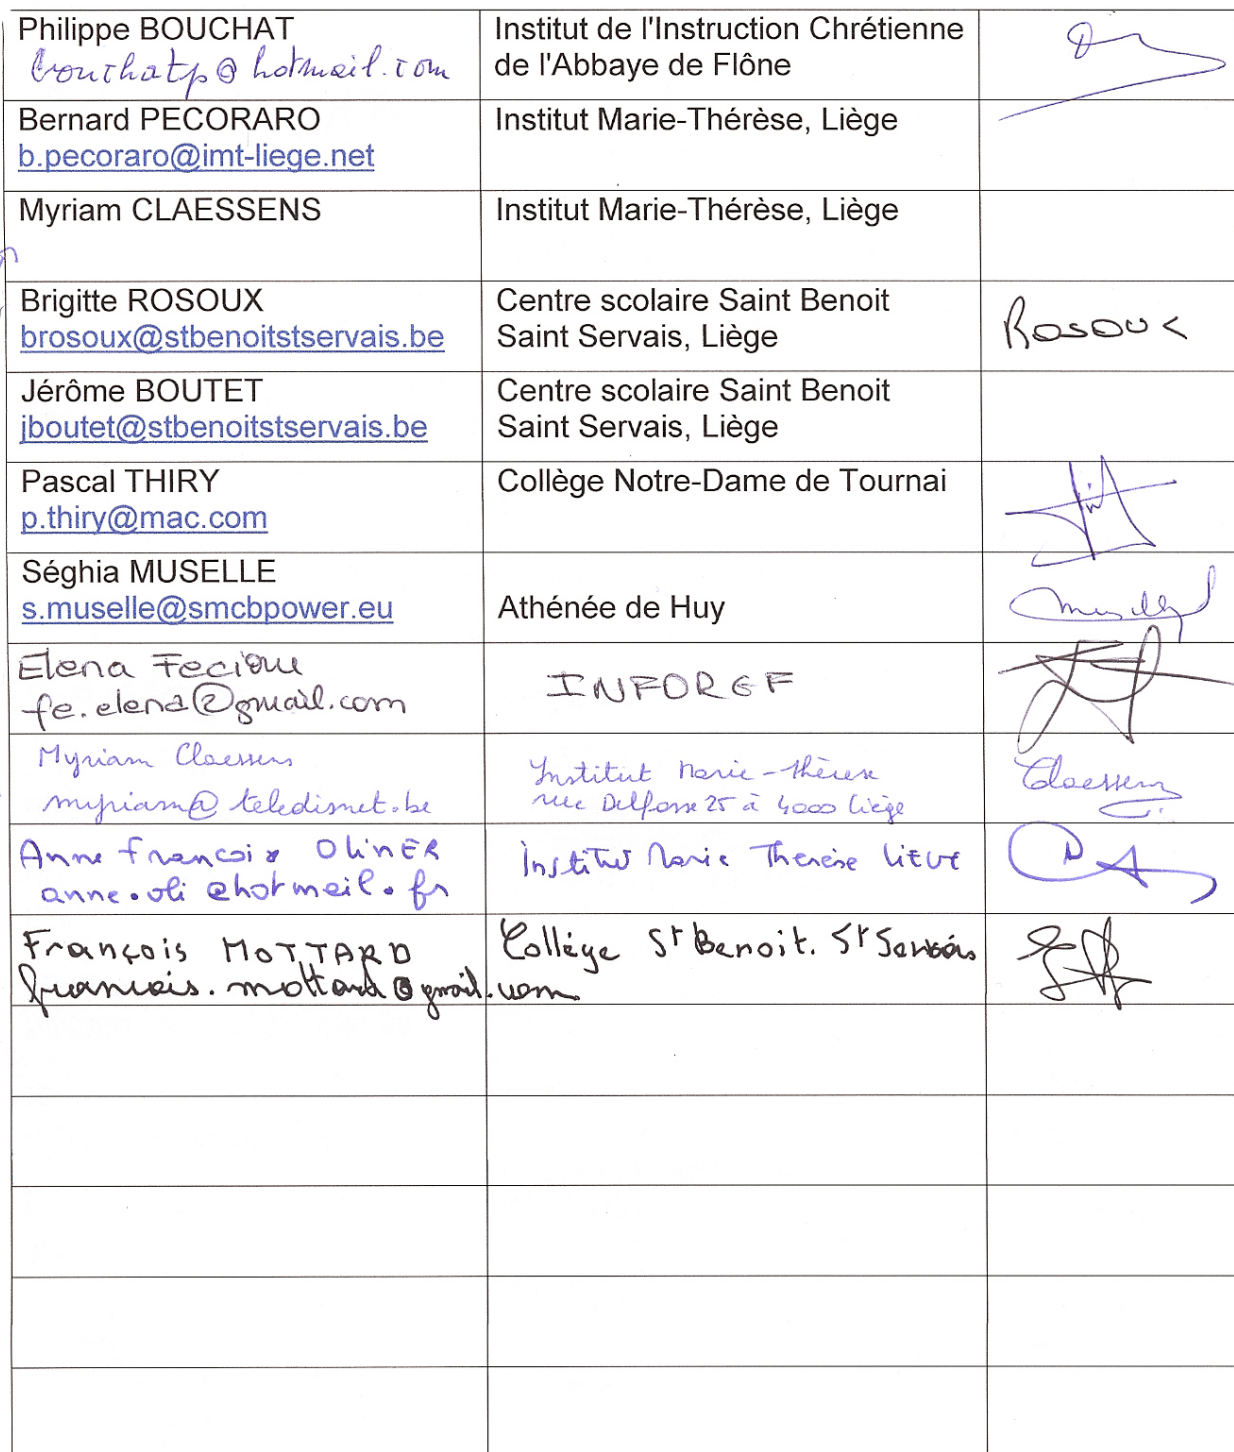 Philippe BOUCHAT
bouchatp@hotmail.com
Institut de l'Instruction Chrétienne
de l'Abbaye de Flône
Bernard PECORARO
b.pecoraro@imt-liege.net
Institut Marie-Thérèse, Liège
Myriam CLAESSENS
Institut Marie-Thérèse, Liège
Brigitte ROSOUX
brosoux@stbenoitstservais.be
Centre scolaire Saint Benoit
Saint Servais, Liège
Rosoux
Jérôme BOUTET
jboutet@stbenoitstservais.be
Centre scolaire Saint Benoit
Saint Servais, Liège
Pascal THIRY
p.thiry@mac.com
Collège Notre-Dame de Tournai
Séghia MUSELLE
s.muselle@smcbpower.eu
Athénée de Huy
Elena
fe.elena@gmail.com
INFOREF
Myriam Claessens
myriam@teledisnet.be
Institut Marie-Thérèse
rue Delfosse 25 à 4000 Liège
Claessens
Anne
anne.oli@hotmail.fr
Institut Marie Therèse
François MOTTARD
francois.mottard@gmail.com
Collège St Benoit. St Servais